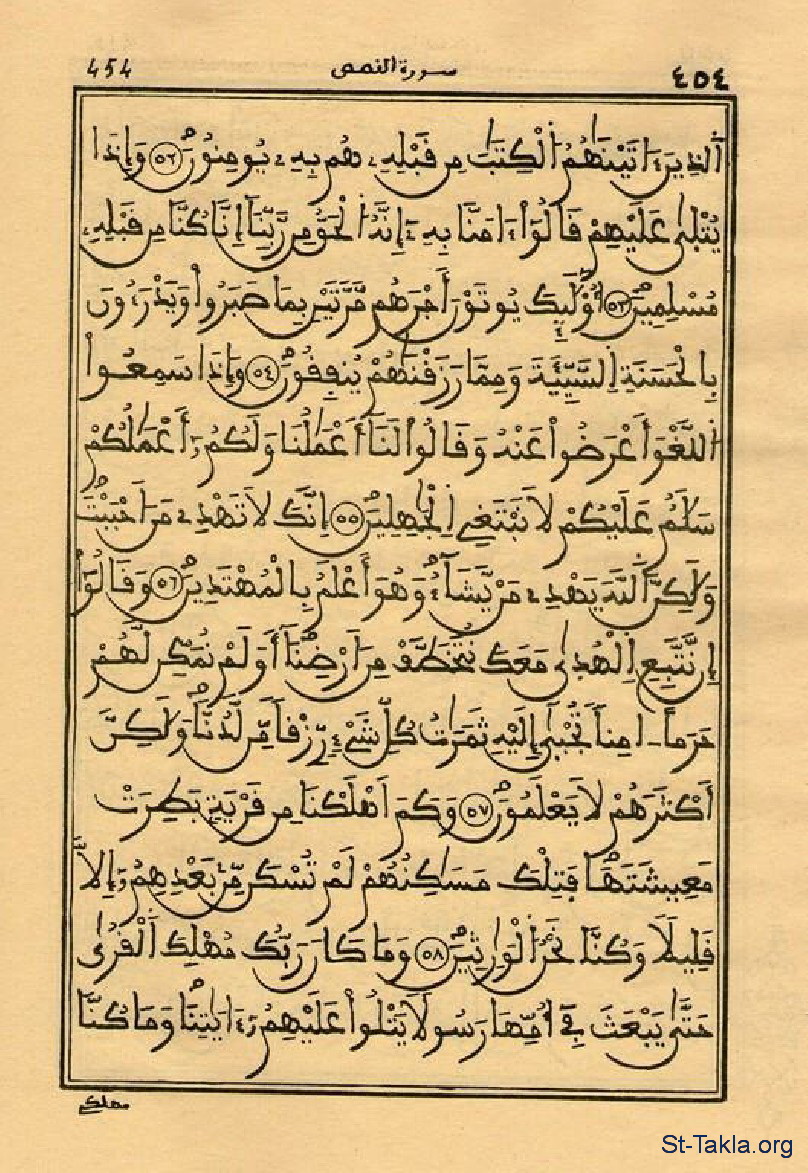 454 سورة القصص ٤٥٤
اَ۬لذِينَ ءَاتَيْنَٰهُمُ اُ۬لْكِتَٰبَ مِن قَبْلِهِۦ هُم بِهِۦ يُومِنُونَۖ ٥٢ وَإِذَا
يُتْل۪ىٰ عَلَيْهِمْ قَالُوٓاْ ءَامَنَّا بِهِۦٓ إِنَّهُ اُ۬لْحَقُّ مِن رَّبِّنَآ إِنَّا كُنَّا مِن قَبْلِهِۦ
مُسْلِمِينَۖ ٥٣ أُوْلَٰٓئِكَ يُوتَوْنَ أَجْرَهُم مَّرَّتَيْنِ بِمَا صَبَرُواْ وَيَدْرَءُونَ
بِالْحَسَنَةِ اِ۬لسَّيِّئَةَ وَمِمَّا رَزَقْنَٰهُمْ يُنفِقُونَۖ ٥٤ وَإِذَا سَمِعُواْ
اُ۬للَّغْوَ أَعْرَضُواْ عَنْهُ وَقَالُواْ لَنَآ أَعْمَٰلُنَا وَلَكُمُۥٓ أَعْمَٰلُكُمْ
سَلَٰمٌ عَلَيْكُمْ لَا نَبْتَغِے اِ۬لْجَٰهِلِينَۖ ٥٥ إِنَّكَ لَا تَهْدِے مَنَ اَحْبَبْتَ
وَلَٰكِنَّ اَ۬للَّهَ يَهْدِے مَنْ يَّشَآءُۖ وَهُوَ أَعْلَمُ بِالْمُهْتَدِينَۖ ٥٦ وَقَالُوٓاْ
إِن نَّتَّبِعِ اِ۬لْهُد۪ىٰ مَعَكَ نُتَخَطَّفْ مِنَ اَرْضِنَآۖ أَوَلَمْ نُمَكِّن لَّهُمْ
حَرَماً ءَامِناً تُجْب۪ىٰٓ إِلَيْهِ ثَمَرَٰتُ كُلِّ شَےْءٍ رِّزْقاً مِّن لَّدُنَّاۖ وَلَٰكِنَّ
أَكْثَرَهُمْ لَا يَعْلَمُونَۖ ٥٧ وَكَمَ اَهْلَكْنَا مِن قَرْيَةِۢ بَطِرَتْ
مَعِيشَتَهَاۖ فَتِلْكَ مَسَٰكِنُهُمْ لَمْ تُسْكَن مِّنۢ بَعْدِهِمُۥٓ إِلَّا
قَلِيلاً وَكُنَّا نَحْنُ اُ۬لْوَٰرِثِينَۖ ٥٨ وَمَا كَانَ رَبُّكَ مُهْلِكَ اَ۬لْقُر۪ىٰ
حَتَّىٰ يَبْعَثَ فِےٓ أُمِّهَا رَسُولاً يَتْلُواْ عَلَيْهِمُۥٓ ءَايَٰتِنَاۖ وَمَا كُنَّا
مهلكے
St-Takla.org